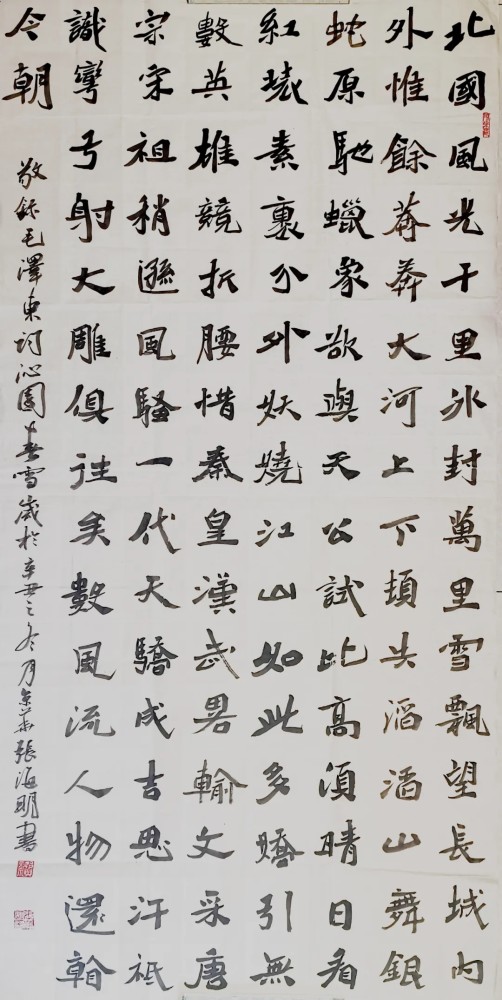 北國風光千里冰封萬里雪飄望長城内
外惟餘莽莽大河上下頓失滔滔山舞銀
蛇原馳蠟象欲與天公試比高須晴日看
紅裝素裹分外妖嬈江山如此多嬌引無
數英雄競折腰惜秦皇漢武畧輸文采唐
宗宋祖稍遜風騷一代天驕成吉思汗祗
識彎弓射大雕俱往矣數風流人物還看
今朝
敬録毛澤東詞沁園春雪歲於辛丑之冬月張海明書